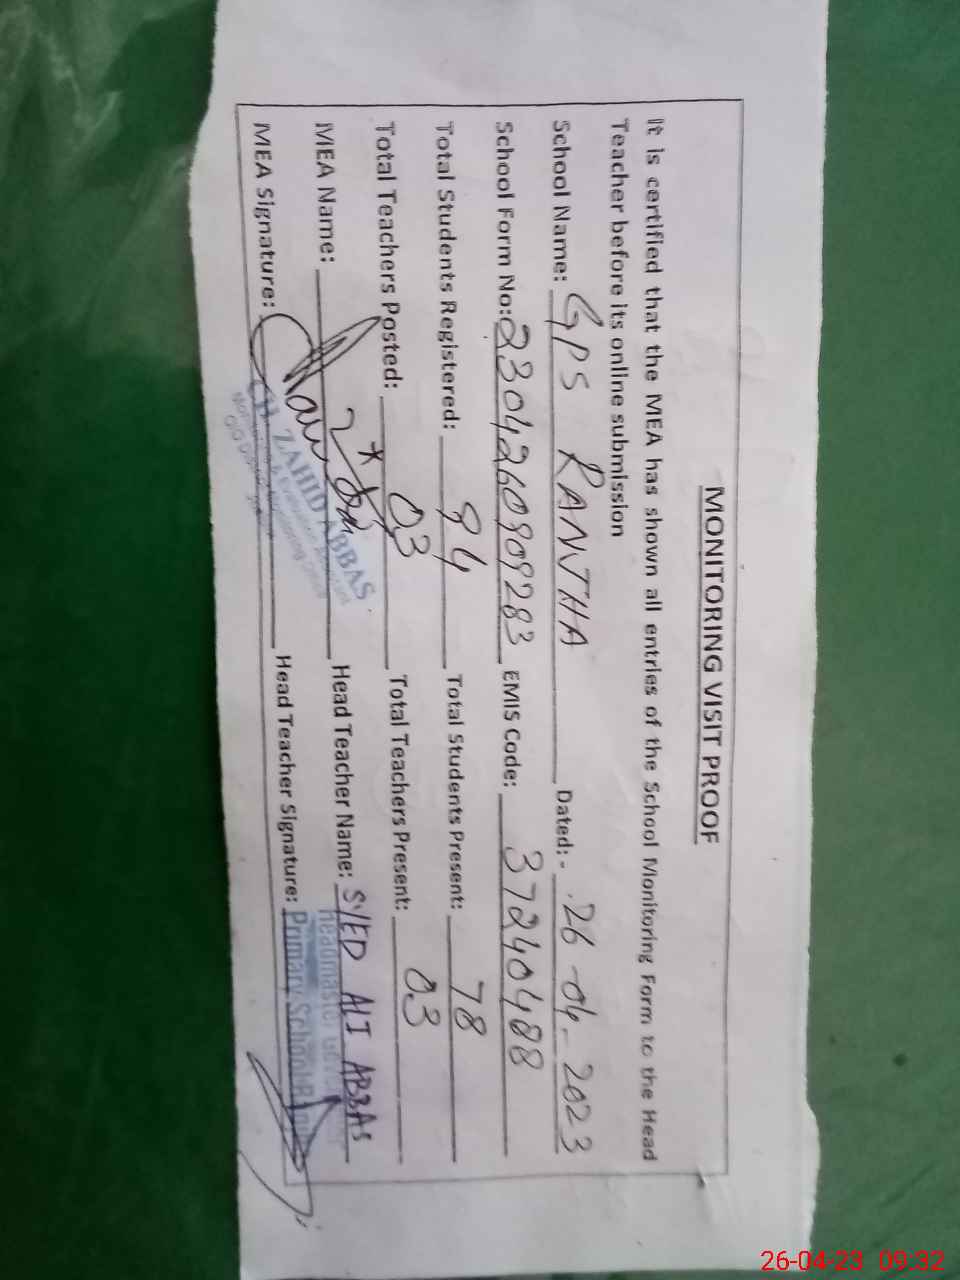 MONITORING VISIT PROOF
It is certified that the MEA has shown all entries of the School Monitoring Form to the Head
Teacher before its online submission
School Name: GPS RANJHA Dated: - 26-04-2023
School Form No: 2304260809283 EMIS Code: 37240488
Total Students Registered: 84 Total Students Present: 78
Total Teachers Posted: 03 Total Teachers Present: 03
MEA Name: Head Teacher Name: SYED ALI ABBAS
ZAHID ABBAS
Headmaster
MEA Signature: Head Teacher Signature:
Primary School
26-04-23 09:32